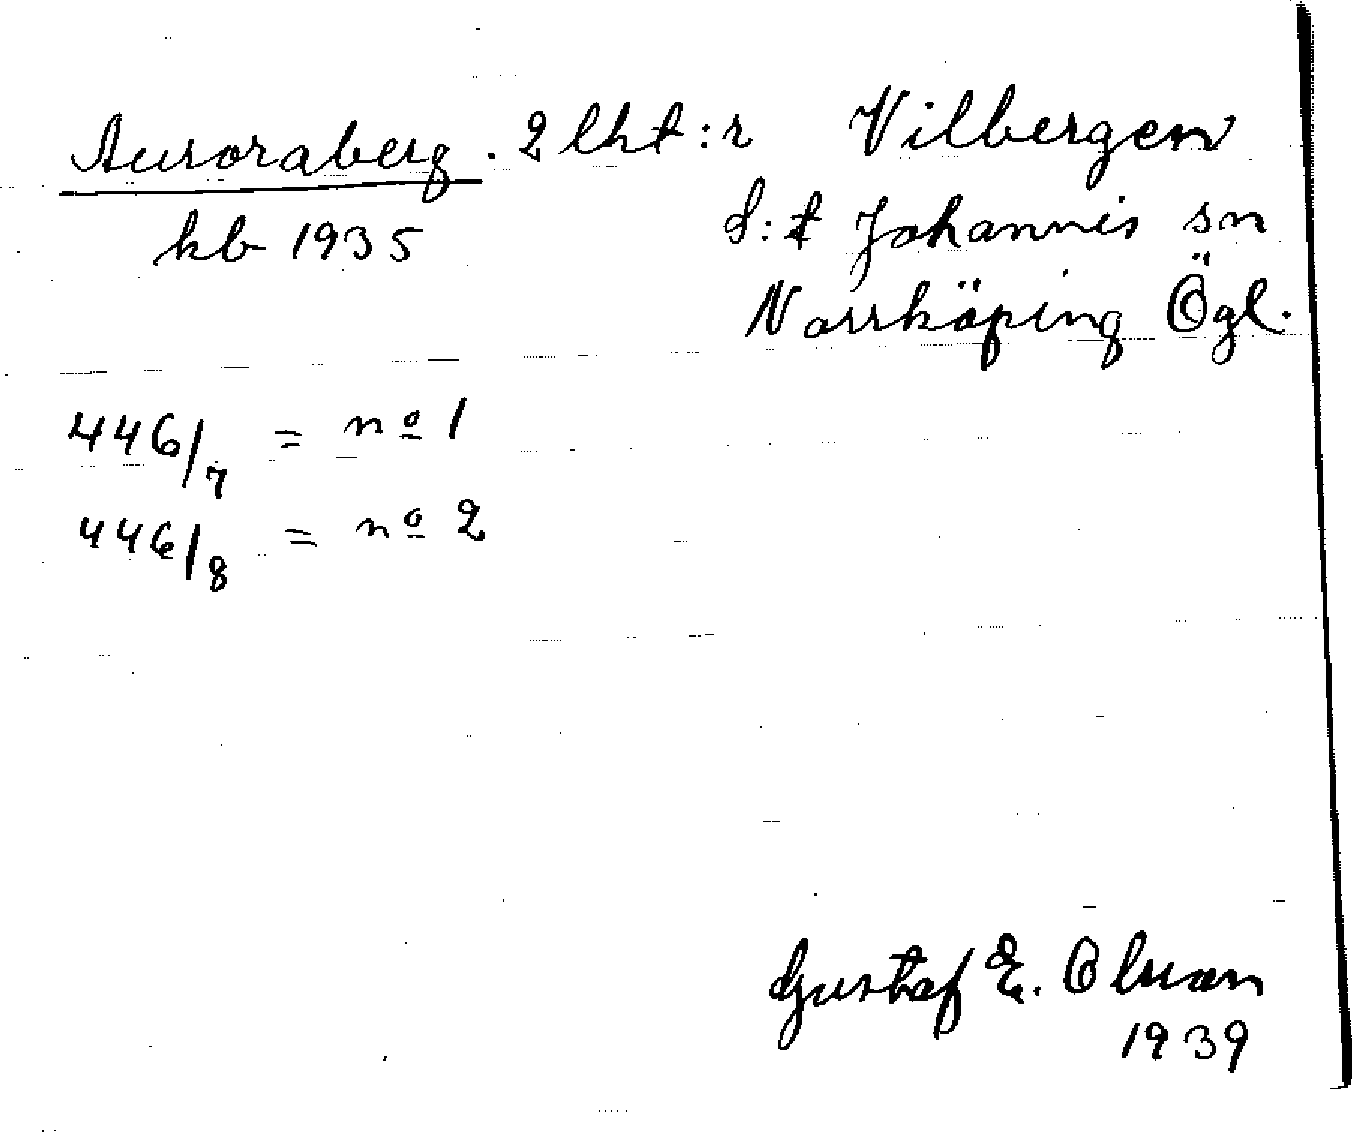 Auroraberg. 2 lht:r Vilbergen
kb 1935 S:t Johannis sn
Norrköping Ögl.
446/7 = nº 1
446/8 = nº 2
Gustaf E. Olsson
1939